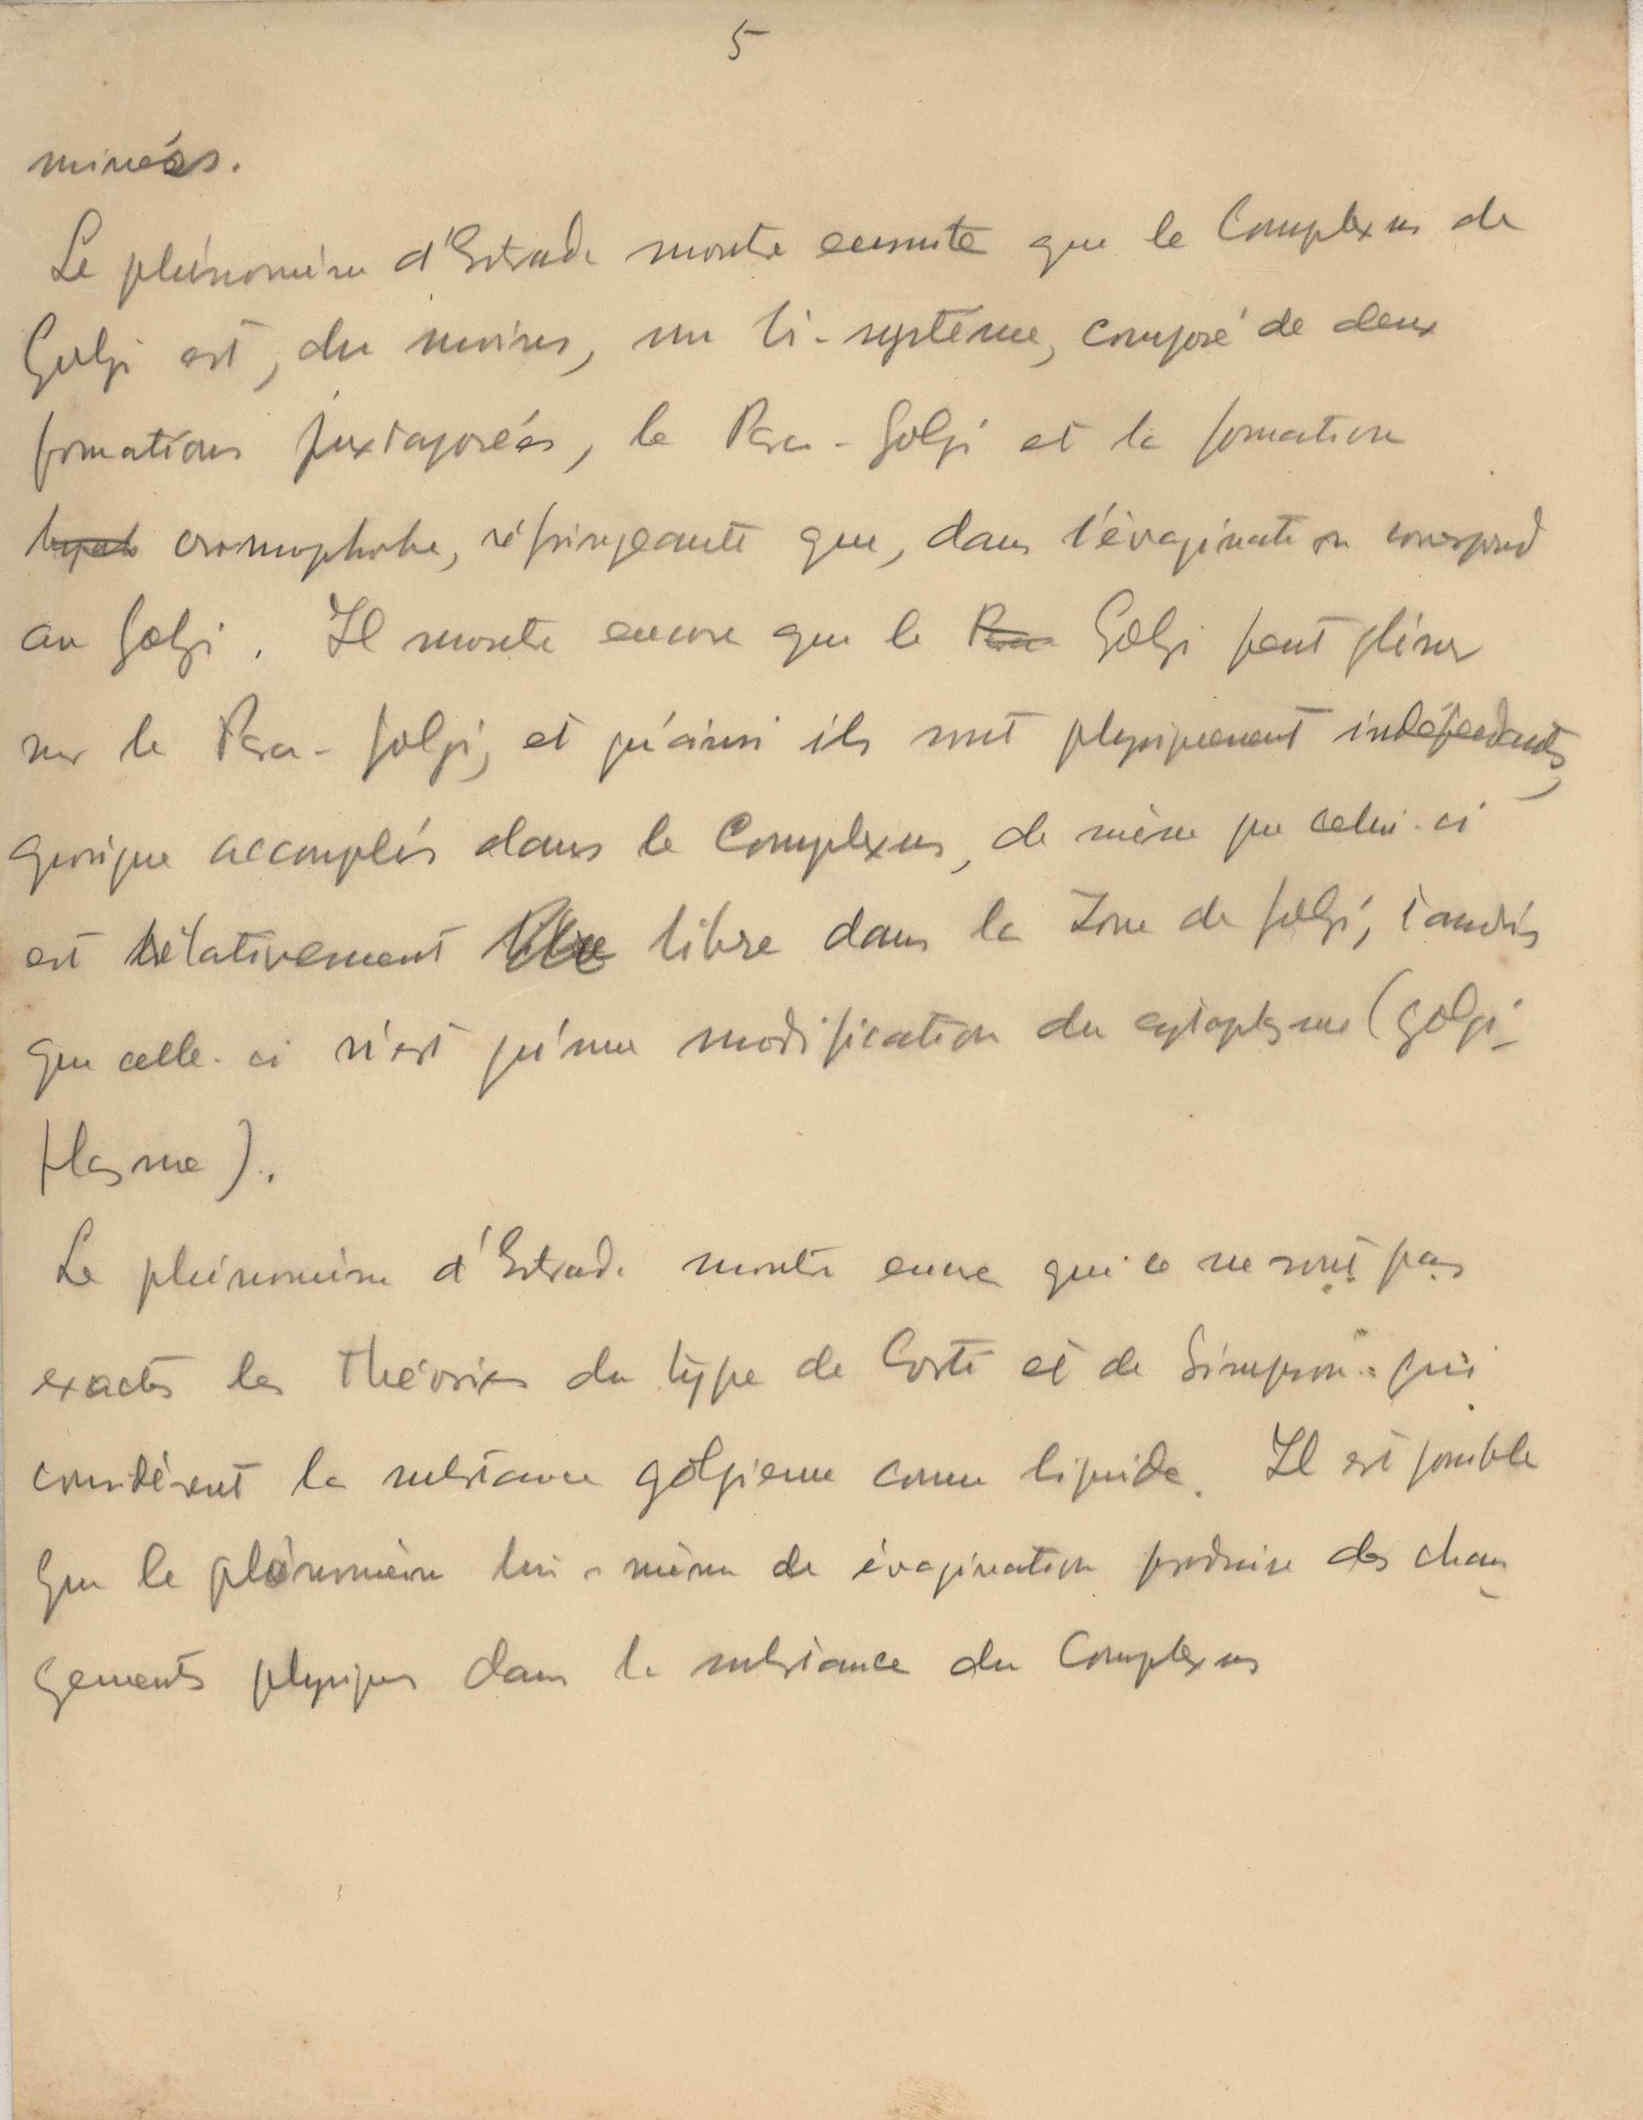 5
minées.
Le phénomène d'Estrada montre ensuite que le Complexus de
Golgi est, du moins, un bi-système, composé de deux
formations juxtaposées, le Para-Golgi et la formation
cromophobe, réfringeante que, dans l'évagination correspond
au Golgi. Il montre encore que le Golgi peut glisser
sur le Para-Golgi, et qu'ainsi ils sont physiquement indépendants,
quoique accouplés dans le Complexus, de même que celui-ci
est rélativement libre dans la Zone de Golgi, tandis
que celle-ci n'est qu'une modification du cytoplasme (golgi-
plasme).
Le phénomène d'Estrada montre encore qui ce ne sont pas
exactes les théories du type de Corti et de Simpson qui
considèrent la substance golgienne comme liquide. Il est possible
que le phénomène lui-même de évagination produise des chan-
gements physiques dans la substance du Complexus